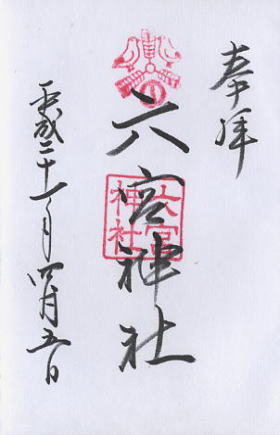 奉拝
六宮神社
六宮
神社
平成二十一年四月五日